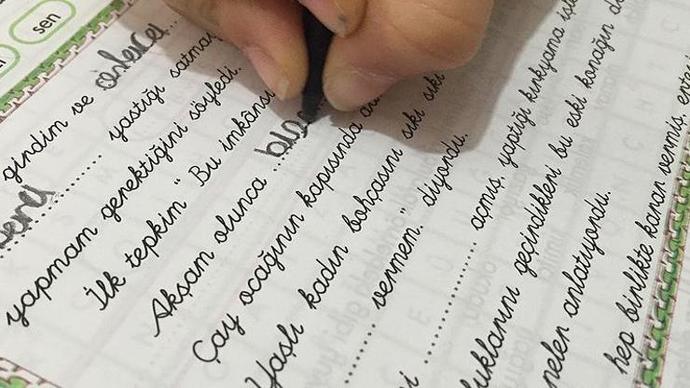 sen
gindim ve önerci
yastığı satmay
yapmam gerektiğini söyledi.
İlk tepkim " Bu imkânsı
Akşam olunca
Çay ocağının kapısında
Yaşlı kadın bohçasını sıkı sıkı
venmem." diyordu.
açmış, yaptığı kırkyama
geçindikleni bu eski konağın
anlatıyondu.
hep binlikte kanan venmiş,